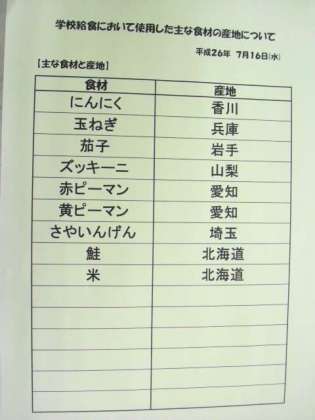 学校給食において使用した主な食材の産地について
平成26年 7月16日(水)
【主な食材と産地】
食材 産地
にんにく 香川
玉ねぎ 兵庫
茄子 岩手
ズッキーニ 山梨
赤ピーマン 愛知
黄ピーマン 愛知
さやいんげん 埼玉
鮭 北海道
米 北海道